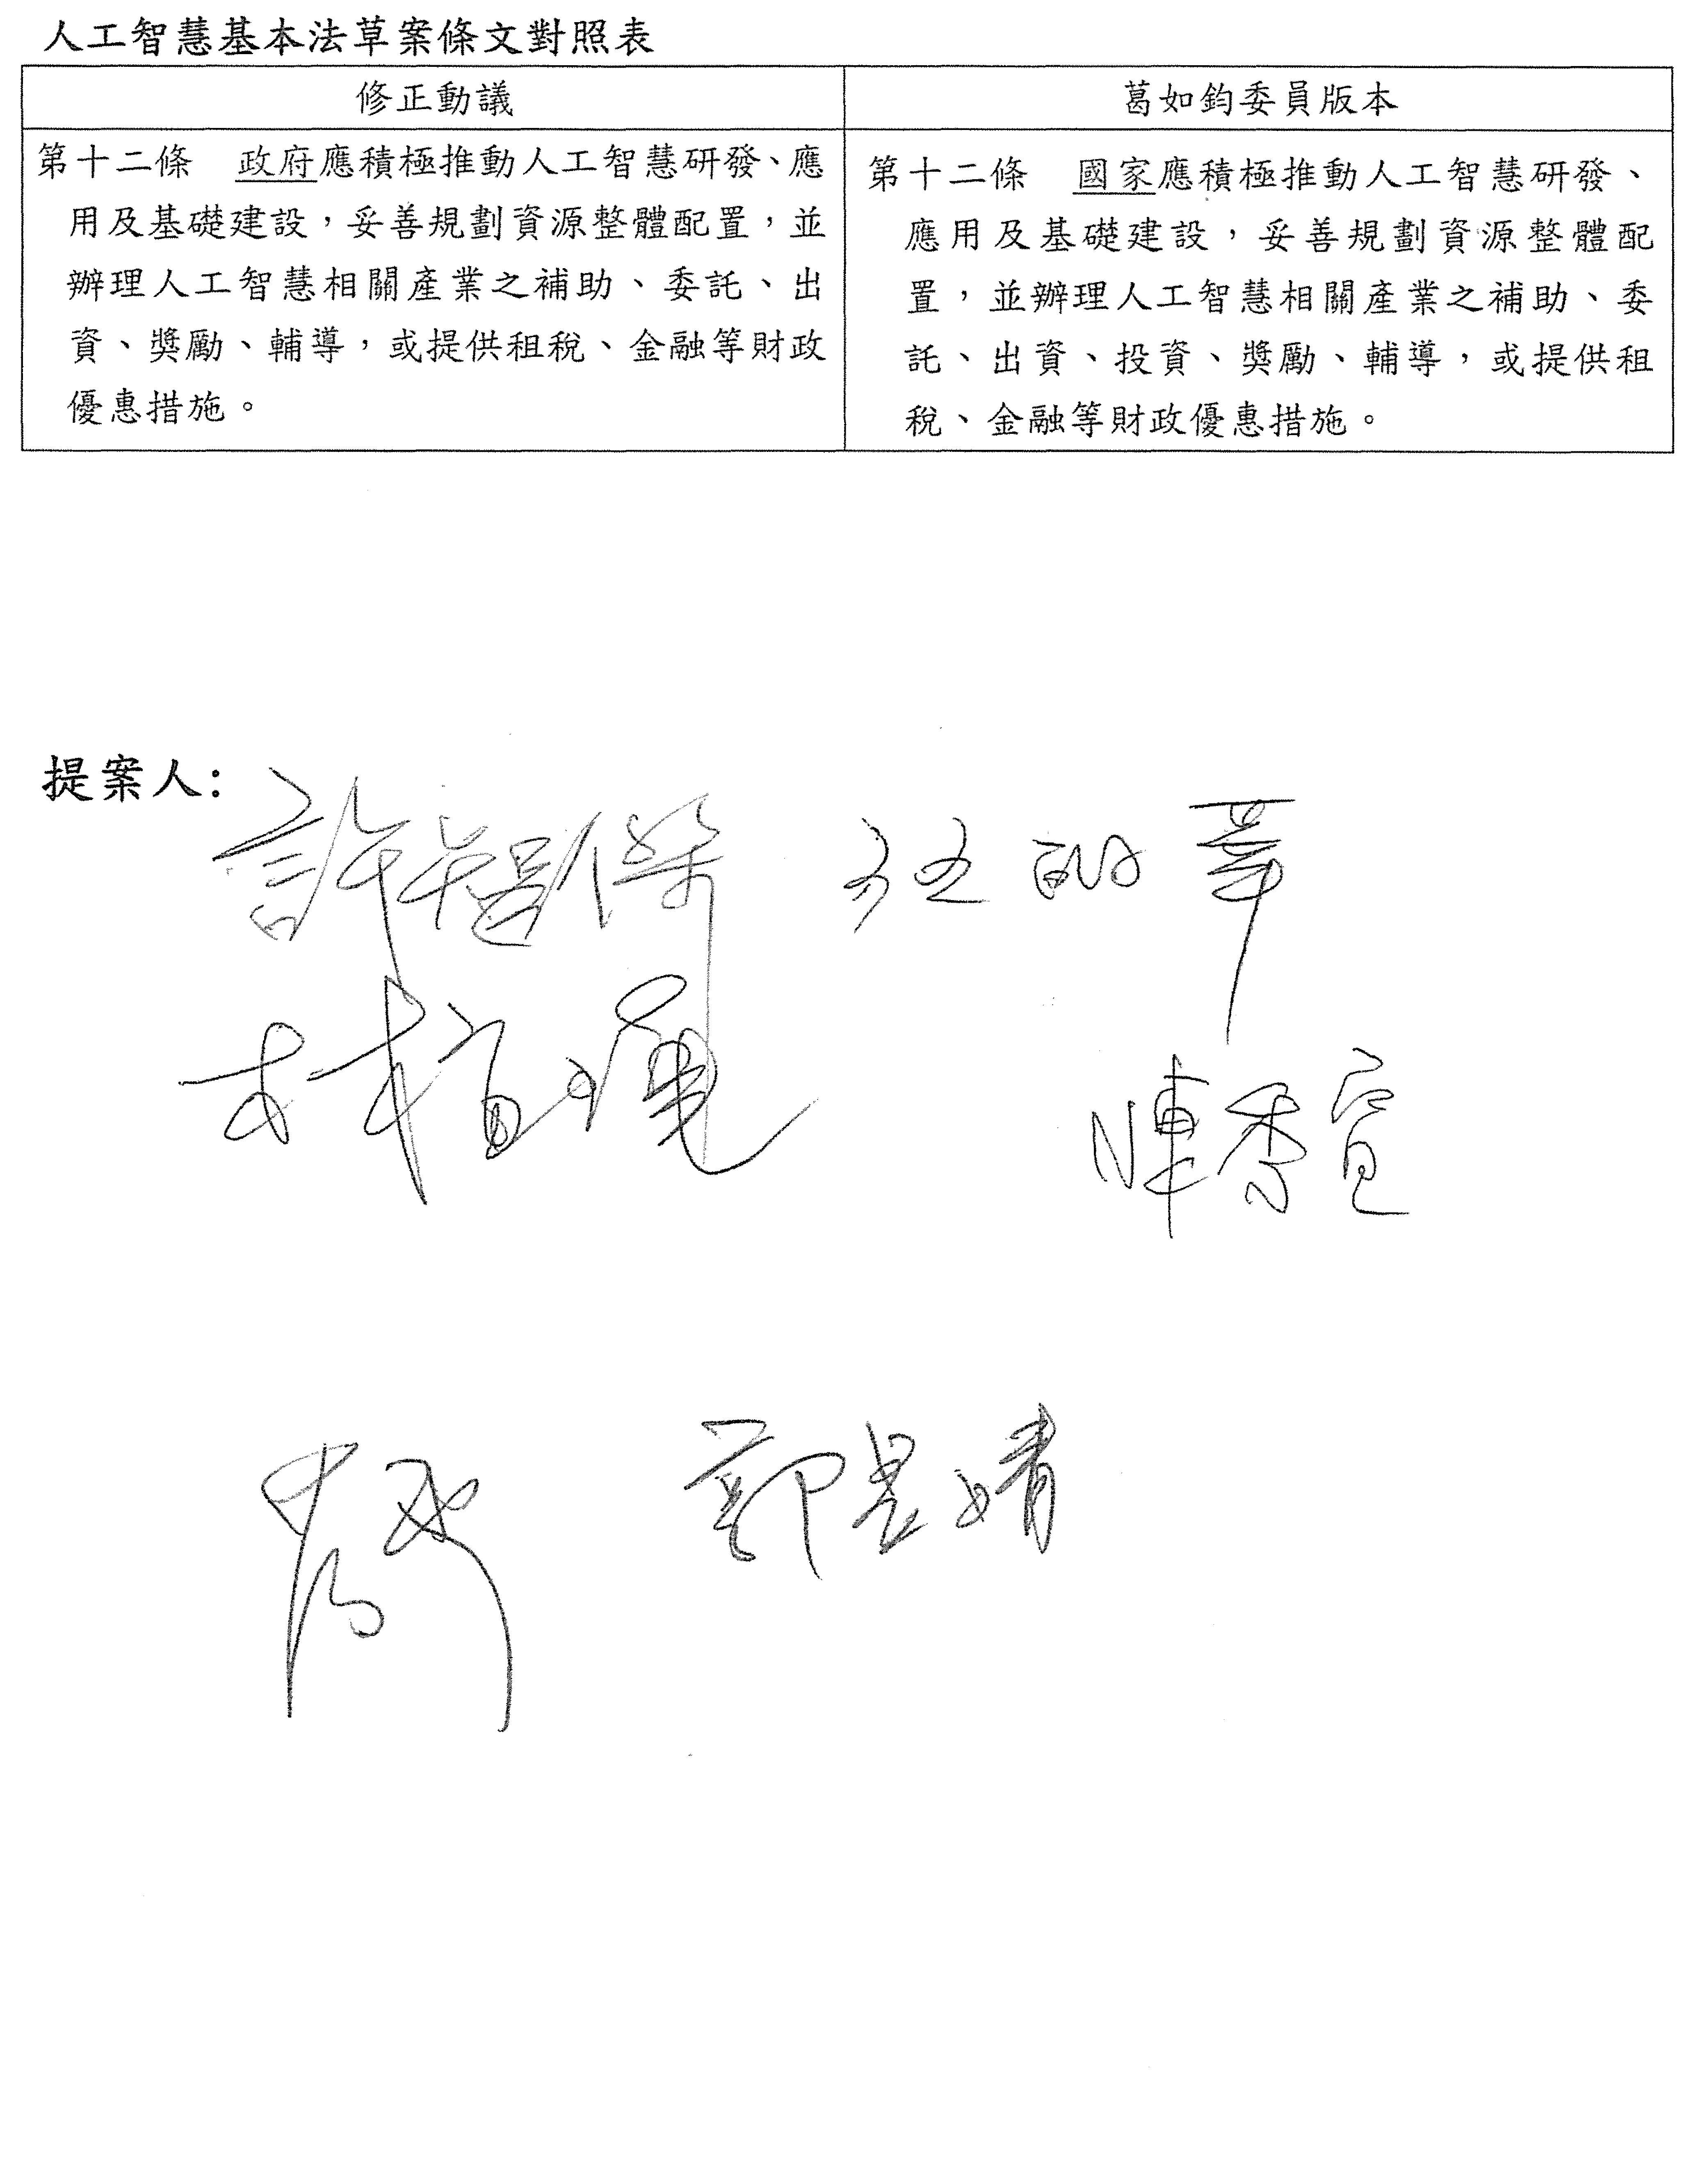 人工智慧基本法草案條文對照表
修正動議
第十二條　政府應積極推動人工智慧研發、應
用及基礎建設，妥善規劃資源整體配置，並
辦理人工智慧相關產業之補助、委託、出
資、獎勵、輔導，或提供租稅、金融等財政
優惠措施。
葛如鈞委員版本
第十二條　國家應積極推動人工智慧研發、
應用及基礎建設，妥善規劃資源整體配
置，並辦理人工智慧相關產業之補助、委
託、出資、投資、獎勵、輔導，或提供租
稅、金融等財政優惠措施。
提案人：
許智傑
陳秀寳